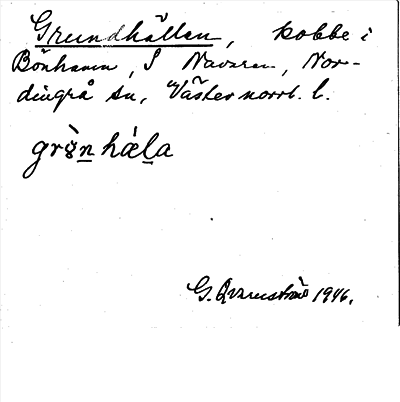 Grundhällan, kobbe i
Bönhamn, S Navaren, Nor-
dingrå sn, Västernorrl. l.
grỳn hǽla
G. Qvarnström 1946.